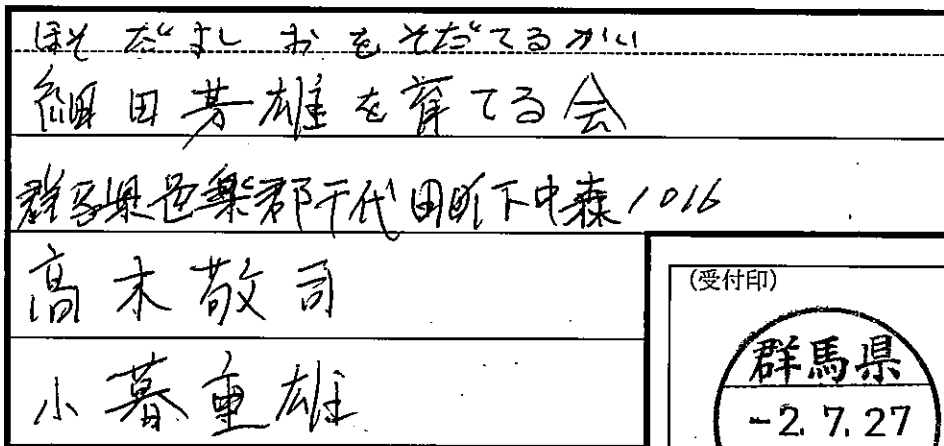 ほそだよしおをそだてるかい
細田芳雄を育てる会
群馬県邑楽郡千代田町下中森1016
高木敬司
小暮重雄
(受付印)
群馬県
-2.7.27